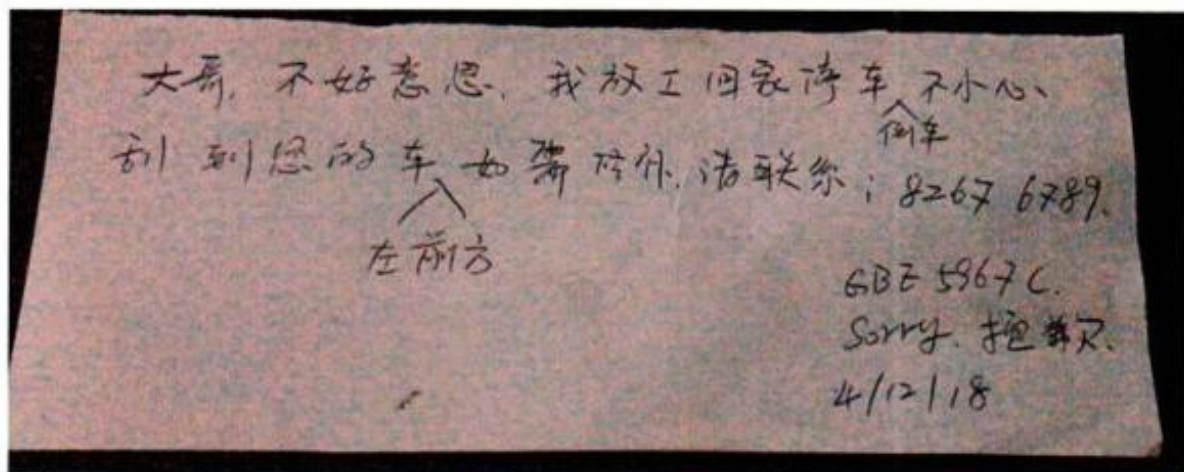 大哥, 不好意思, 我放工回家停车不小心、
倒车
刮到您的车 如需 请联系: 8267 6789.
左前方
GBE 5967C.
Sorry. 抱歉.
4/12/18